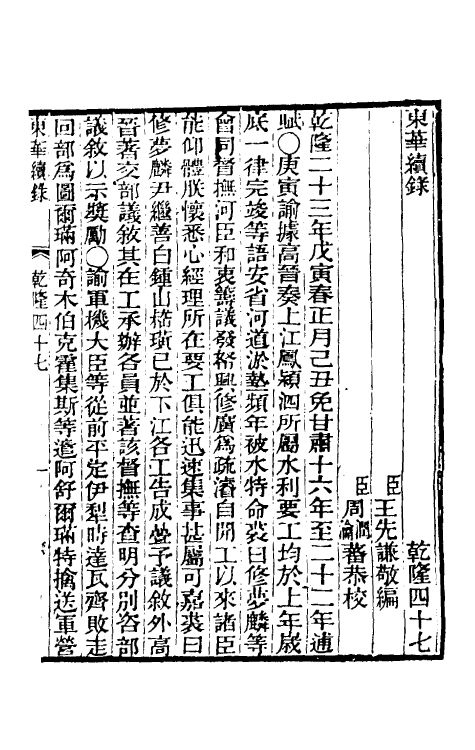 東華續錄　乾隆四十七
臣王先謙敬編
臣周潤蕃周瀹蕃恭校
乾隆二十三年戊寅春正月己丑免甘肅十六年至二十二年逋
賦〇庚寅諭據高晉奏上江鳳潁泗所屬水利要工均於上年歲
底一律完竣等語安省河道淤墊頻年被水特命裘曰修夢麟等
會同督撫河臣和衷籌議發帑興修廣爲疏濬自開工以來諸臣
能仰體朕懷悉心經理所在要工俱能迅速集事甚屬可嘉裘曰
修夢麟尹繼善白鍾山嵇璜已於下江各工告成登予議敘外高
晉著交部議敘其在工承辦各員並著該督撫等查明分別咨部
議敘以示獎勵〇諭軍機大臣等從前平定伊犁時達瓦齊敗走
回部爲圖爾璊阿奇木伯克霍集斯等遣阿舒爾璊特擒送軍營
東華續錄　乾隆四十七　一